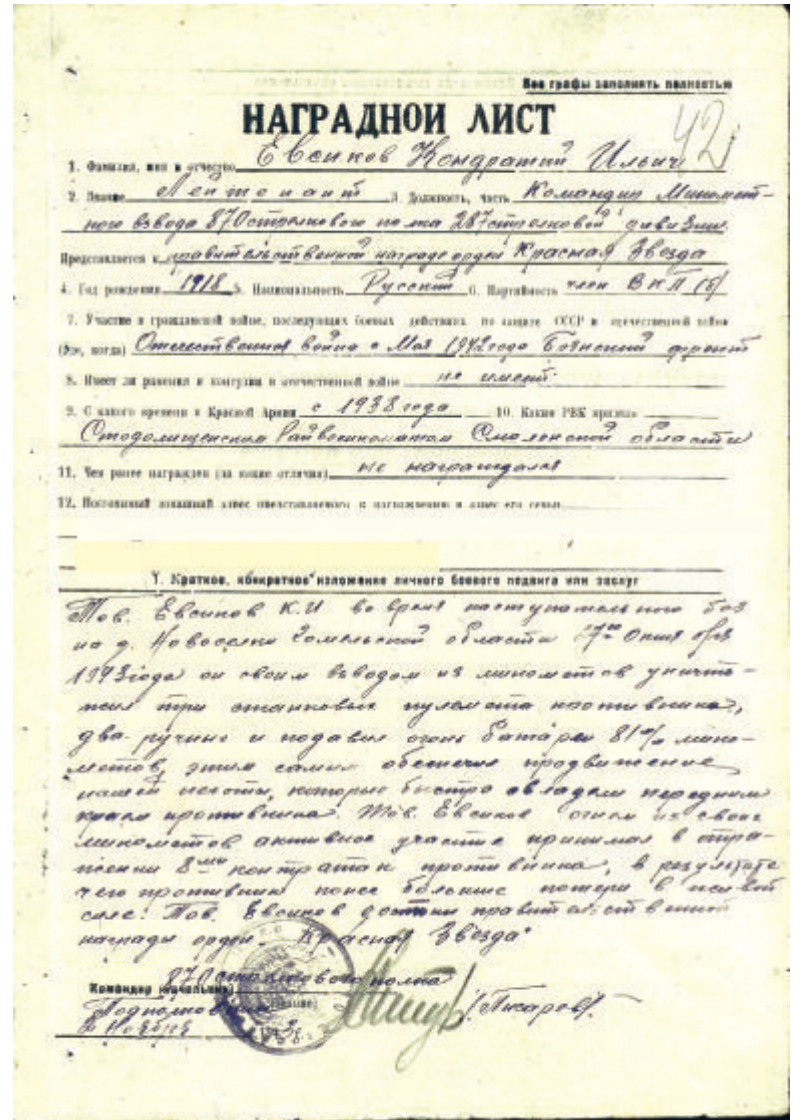 Все графы заполнять полностью
НАГРАДНОЙ ЛИСТ
42
1. Фамилия, имя и отчество Евсиков Кондратий Ильич
2. Звание Лейтенант 3. Должность, часть Командир Миномет-
ного взвода 870 стрелкового полка 287 стрелковой дивизии.
Представляется к правительственной награде орден Красная Звезда
4. Год рождения 1918 5. Национальность Русский 6. Партийность член ВКП(б)
7. Участие в гражданской войне, последующих боевых действиях по защите СССР и отечественной войне
(где, когда) Отечественная война с Мая 1942 года Брянский фронт
8. Имеет ли ранения и контузии в отечественной войне не имеет.
9. С какого времени в Красной Армии с 1938 года 10. Каким РВК призван
Стодолищенским Райвоенкоматом Смоленской области
11. Чем ранее награжден (за какие отличия) не награждался
12. Постоянный домашний адрес представляемого к награждению и адрес его семьи
1. Краткое, конкретное изложение личного боевого подвига или заслуг
Тов. Евсиков К.И во время наступательного боя
на д. Новоселки Гомельской области Октября
1943 года он своим взводом из минометов уничто-
жил три станковых пулемета противника,
два ручных и подавил огонь батареи 81 м/м мино-
метов, этим самим обеспечил продвижение
нашей пехоты, которые быстро овладели передним
краем противника. Тов. Евсиков огнем из своих
минометов активное участие принимал в отра-
жении 8ми контратак противника, в результате
чего противник понес большие потери в живой
силе. Тов. Евсиков достоин правительственной
награды орден "Красная Звезда"
870 стрелкового полка
Командир (начальник)
Подполковник /Писарев/.
Ноября